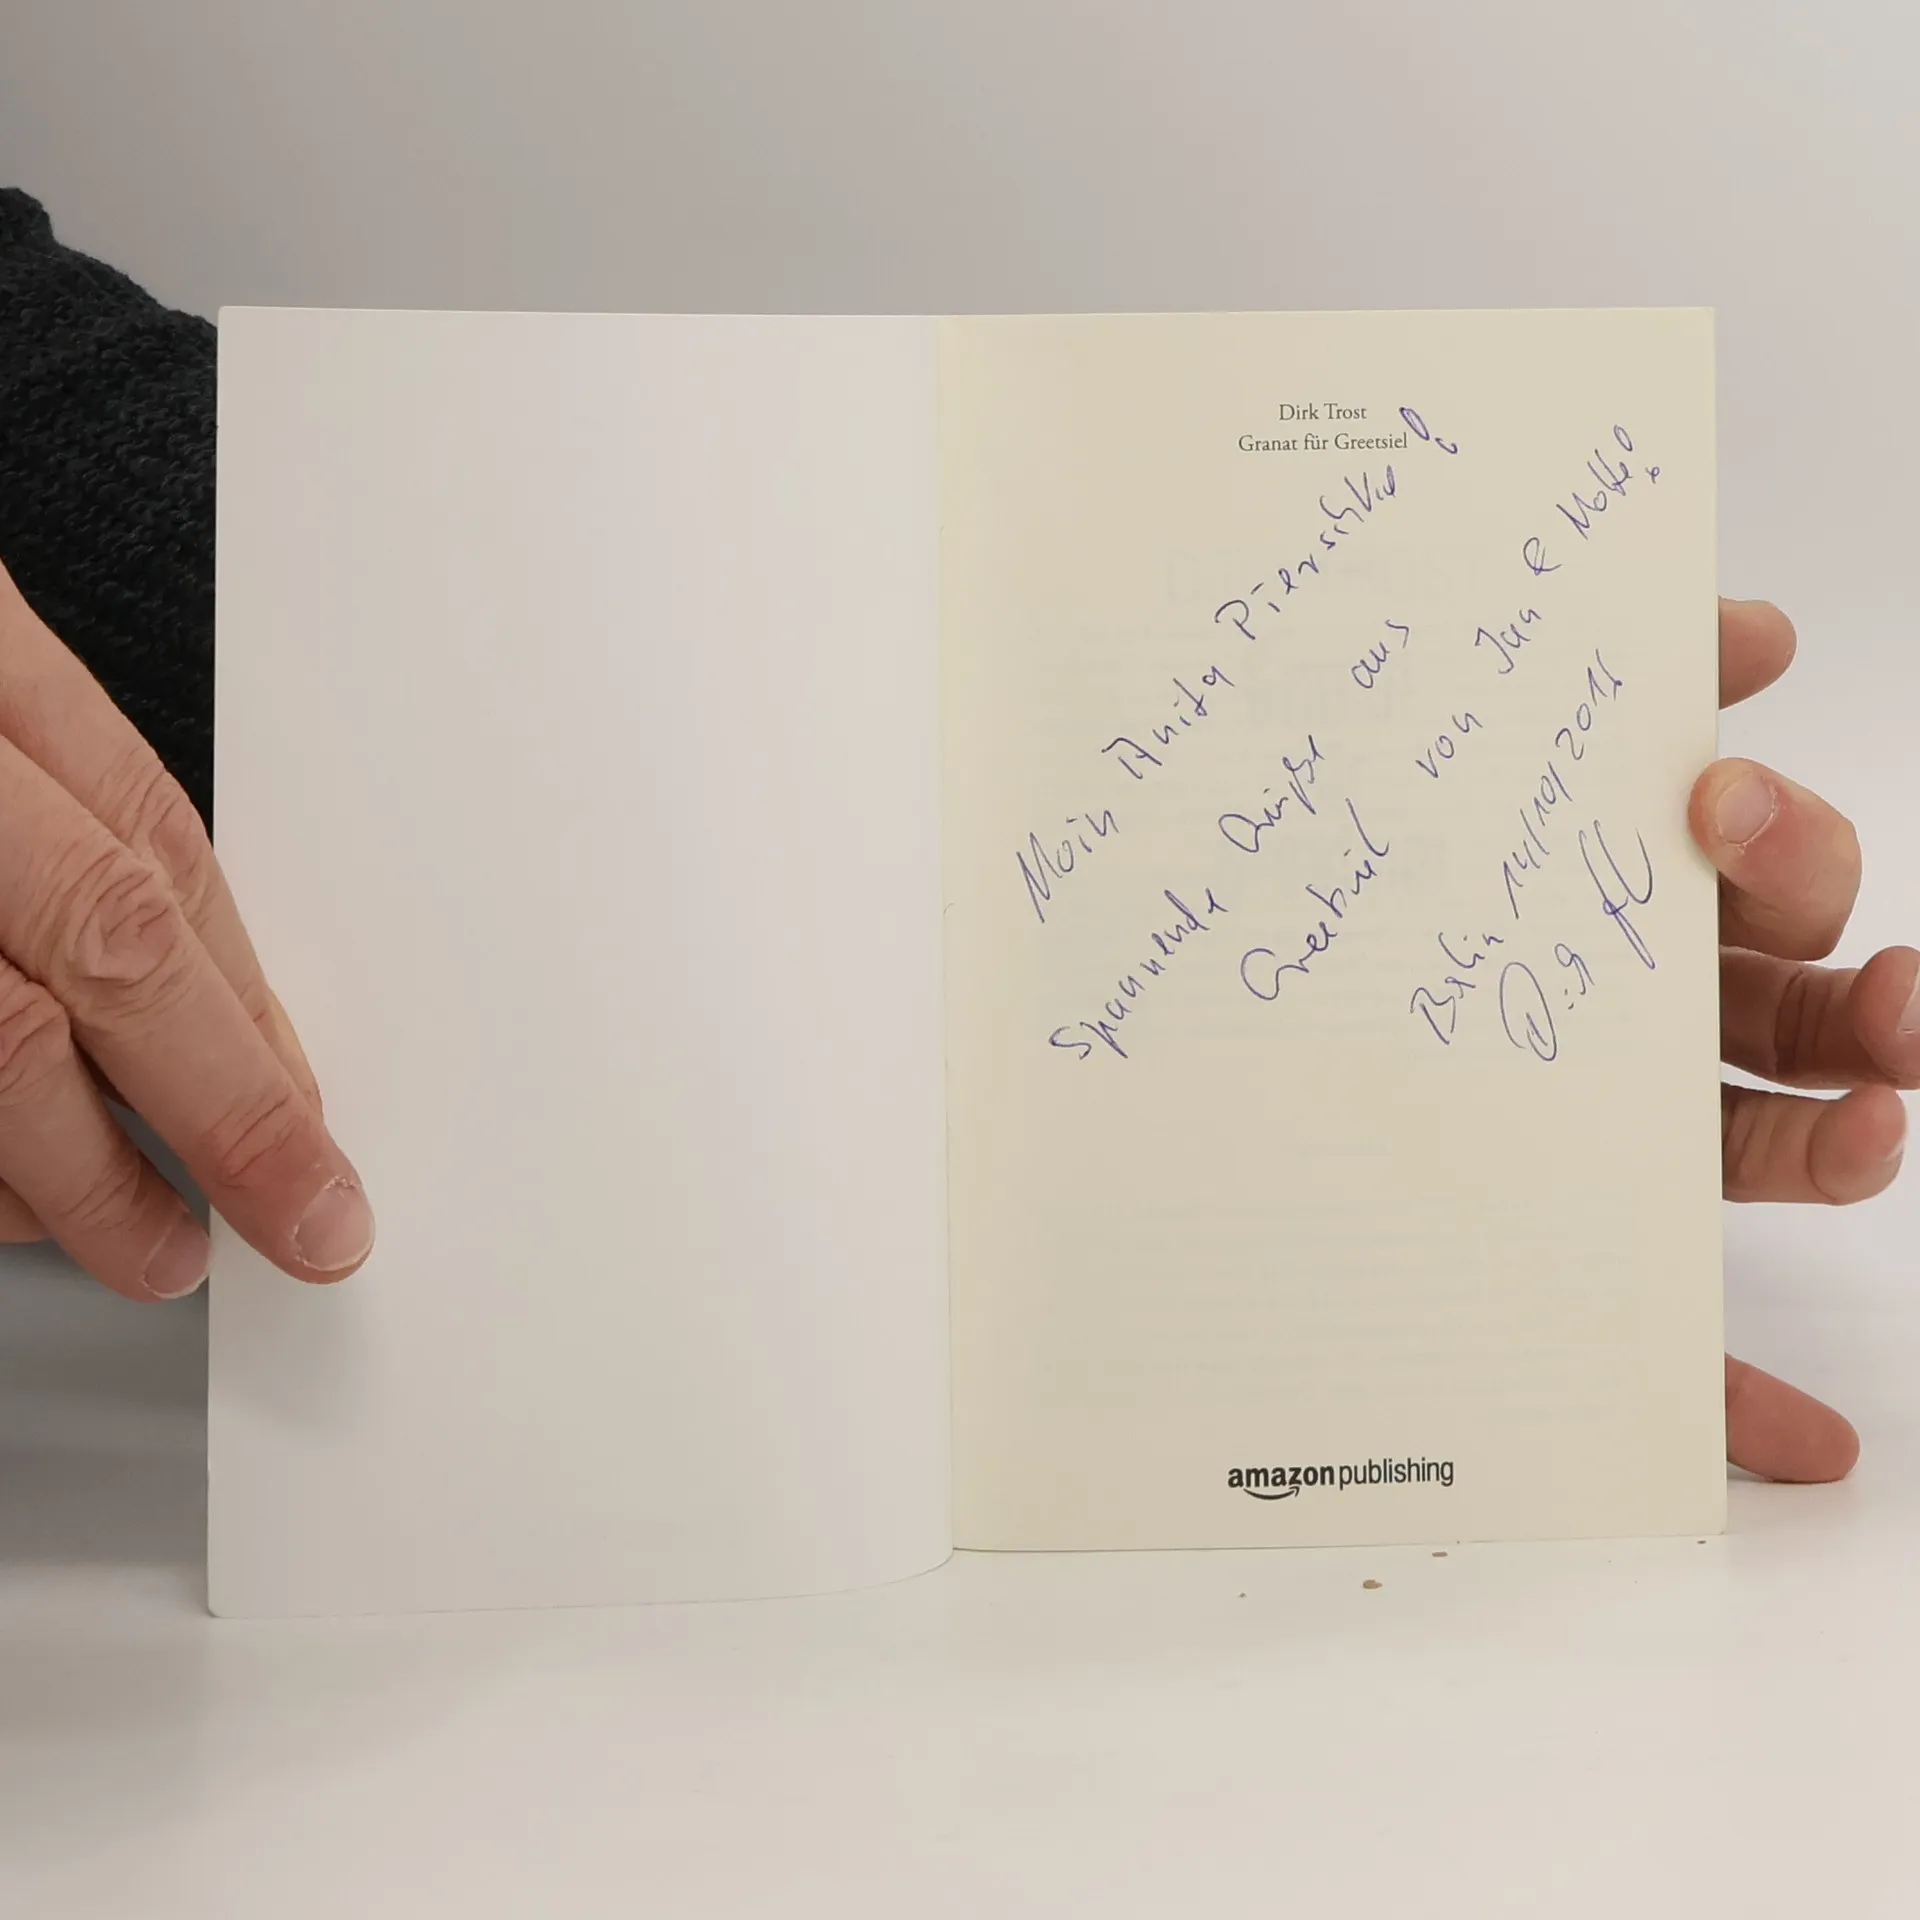 Dirk Trost
Granat für Greetsiel
Moin Anita !
Spannende Grüße aus
Greetsiel von Jan & Motte!
Berlin 14/10/2016
Dirk
amazon publishing